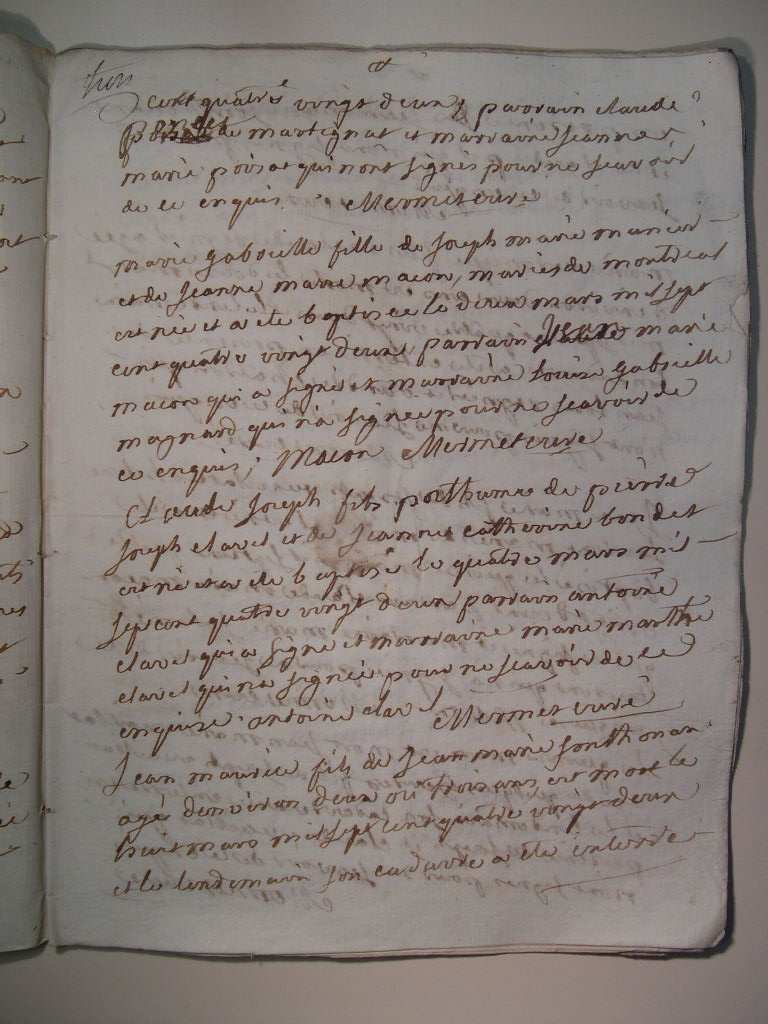 cent quatre vingt deux, parrain claude
de martignat et marraine jeanne
marie poisat qui n'ont signés pour ne scavoir
de ce enquis. Mermet curé
marie gabrielle fille de joseph marie manier
et de jeanne marie macon, mariés de montreal
est née et a été baptisée le deux mars mil sept
cent quatre vingt deux parrain jean marie
macon qui a signé et marraine louise gabrielle
magnard qui n'a signée pour ne scavoir de
ce enquis; Macon Mermet curé
Claude joseph fils posthume de pierre
joseph clavel et de jeanne catherine bondet
est né et a été baptisé le quatre mars mil
sept cent quatre vingt deux parrain antoine
clavel qui a signé et marraine marie marthe
clavel qui n'a signée pour ne scavoir de ce
enquise. antoine clavel Mermet curé
Jean maurice fils de jean marie sonthonax
agé denviron deux ou trois ans est mort le
huit mars mil sept cent quatre vingt deux
et le lendemain son cadavre a été enterré